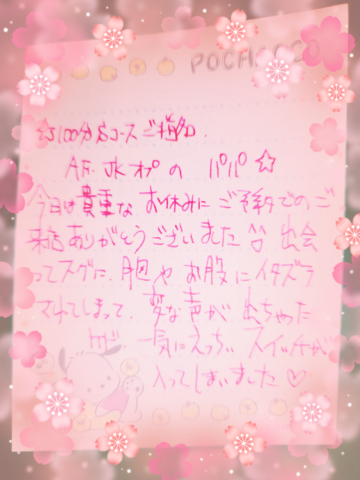 POCHACCO
100分Sコースご指名.
AF. JKオプの パパ☆
今日は貴重な お休みに ご予約でのご
来店ありがとうございました 出会
ってスグに、胸や お股に イタズラ
されてしまって、変な声が 出ちゃった
けど 一気にえっちぃ スイッチが
入ってしまいました♡